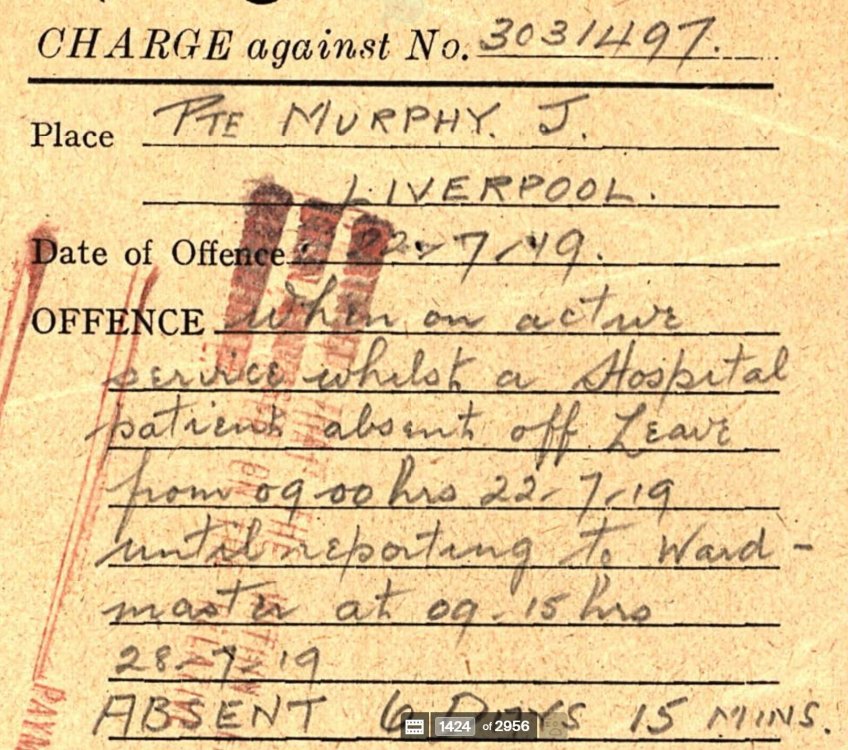 CHARGE against No. 3031497.
Place PTE MURPHY. J.
LIVERPOOL.
Date of Offence 22-7-19.
OFFENCE when on active
service whilst a Hospital
patient absent off Leave
from 09 00 hrs 22-7-19
until reporting to Ward-
master at 09-15 hrs
28-7-19
ABSENT 6 DAYS 15 MINS.
1424 of 2956